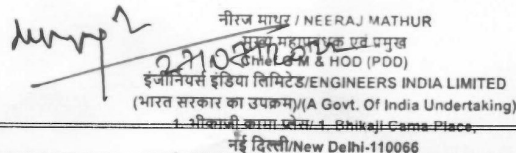 नीरज माथुर / NEERAJ MATHUR
मुख्य महाप्रबंधक एवं प्रमुख
Chief GM & HOD (PDD)
इंजीनियर्स इंडिया लिमिटेड/ENGINEERS INDIA LIMITED
(भारत सरकार का उपक्रम)/(A Govt. Of India Undertaking)
1, भीकाजी कामा प्लेस/ 1, Bhikaji Cama Place,
नई दिल्ली/New Delhi-110066